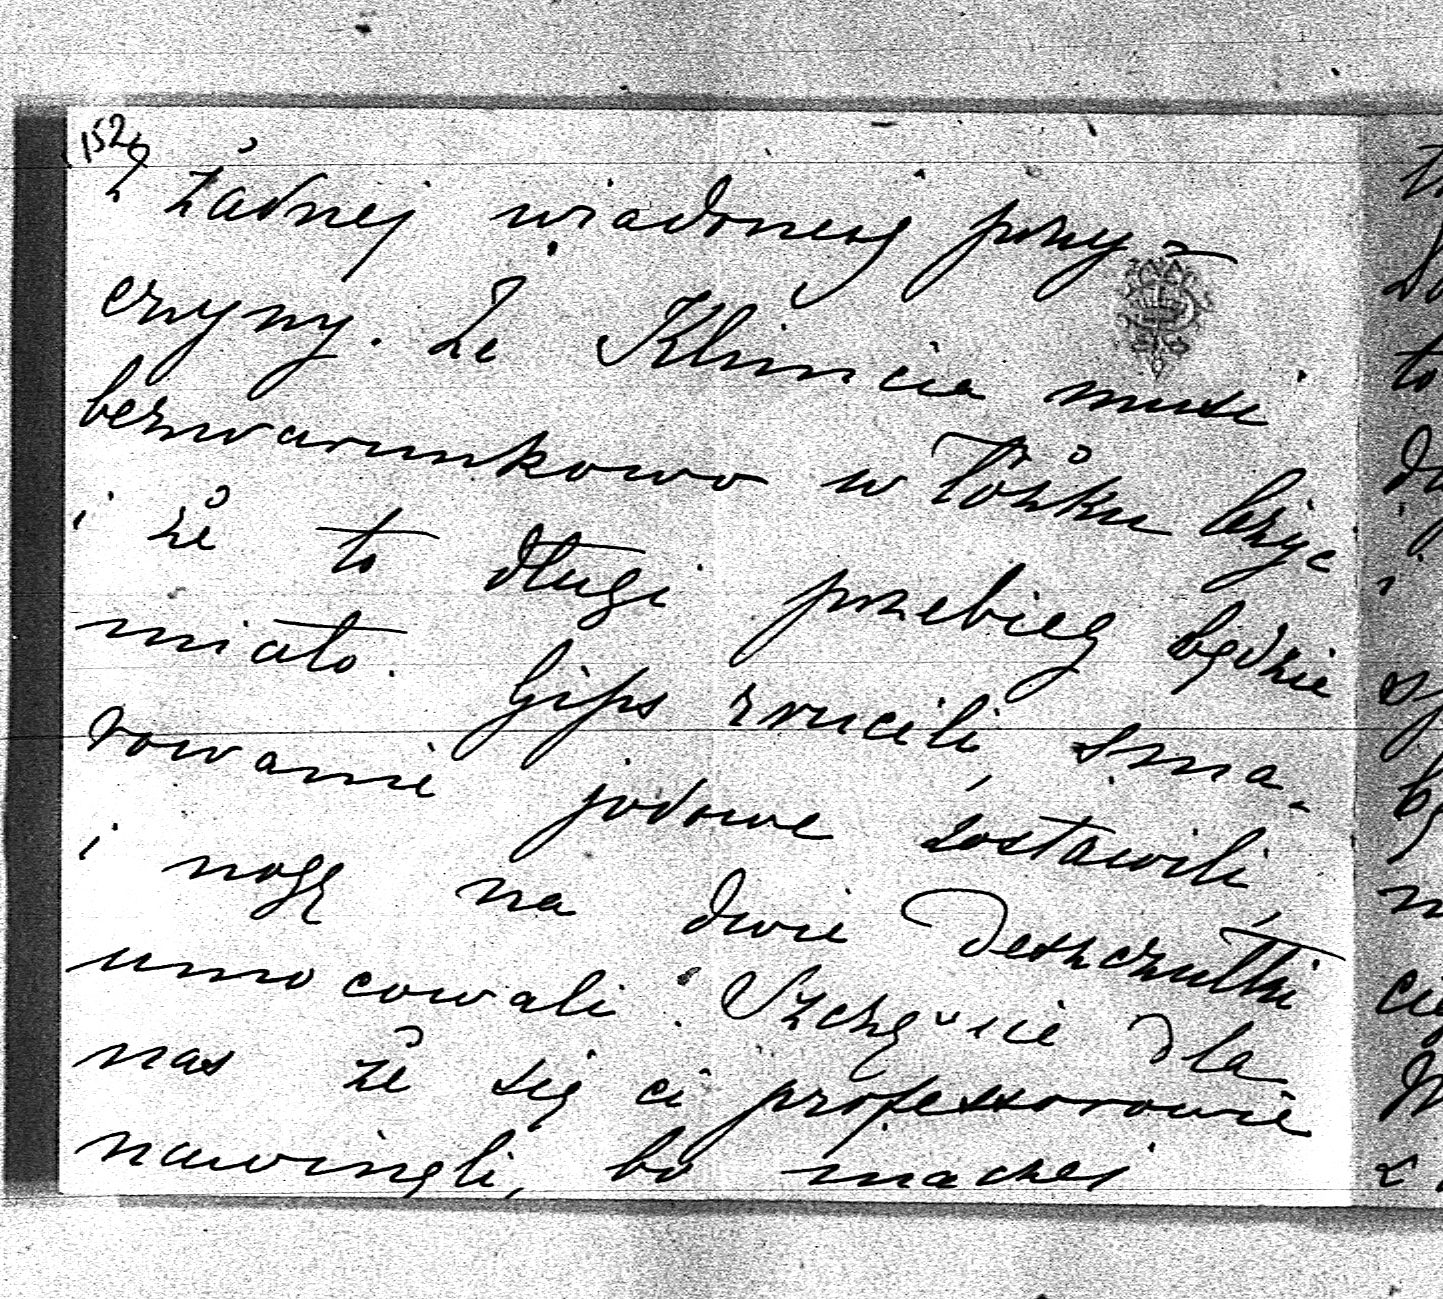 152
z żadnej wiadomej przy-
czyny. Że Klimcia musi
bezwarunkowo w łóżku leżyć
i że to długi przebieg będzie
miało. Gips zrucili, sma-
rowanie jodowe zostawili,
i nogę na dwie deszczułki
umocowali. Szczęście dla
nas że się ci professorowie
nawinęli, bo inaczej